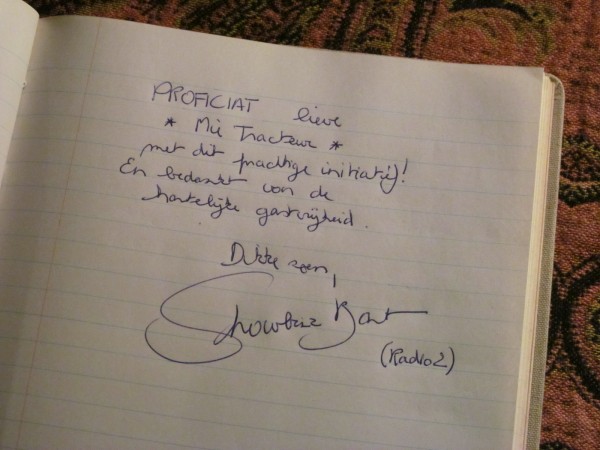 PROFICIAT lieve
* Mie Tracteur *
met dit prachtige initiatief!
En bedankt voor de
hartelijke gastvrijheid.
Dikke zoen,
Showbizz Bart
(Radio2)